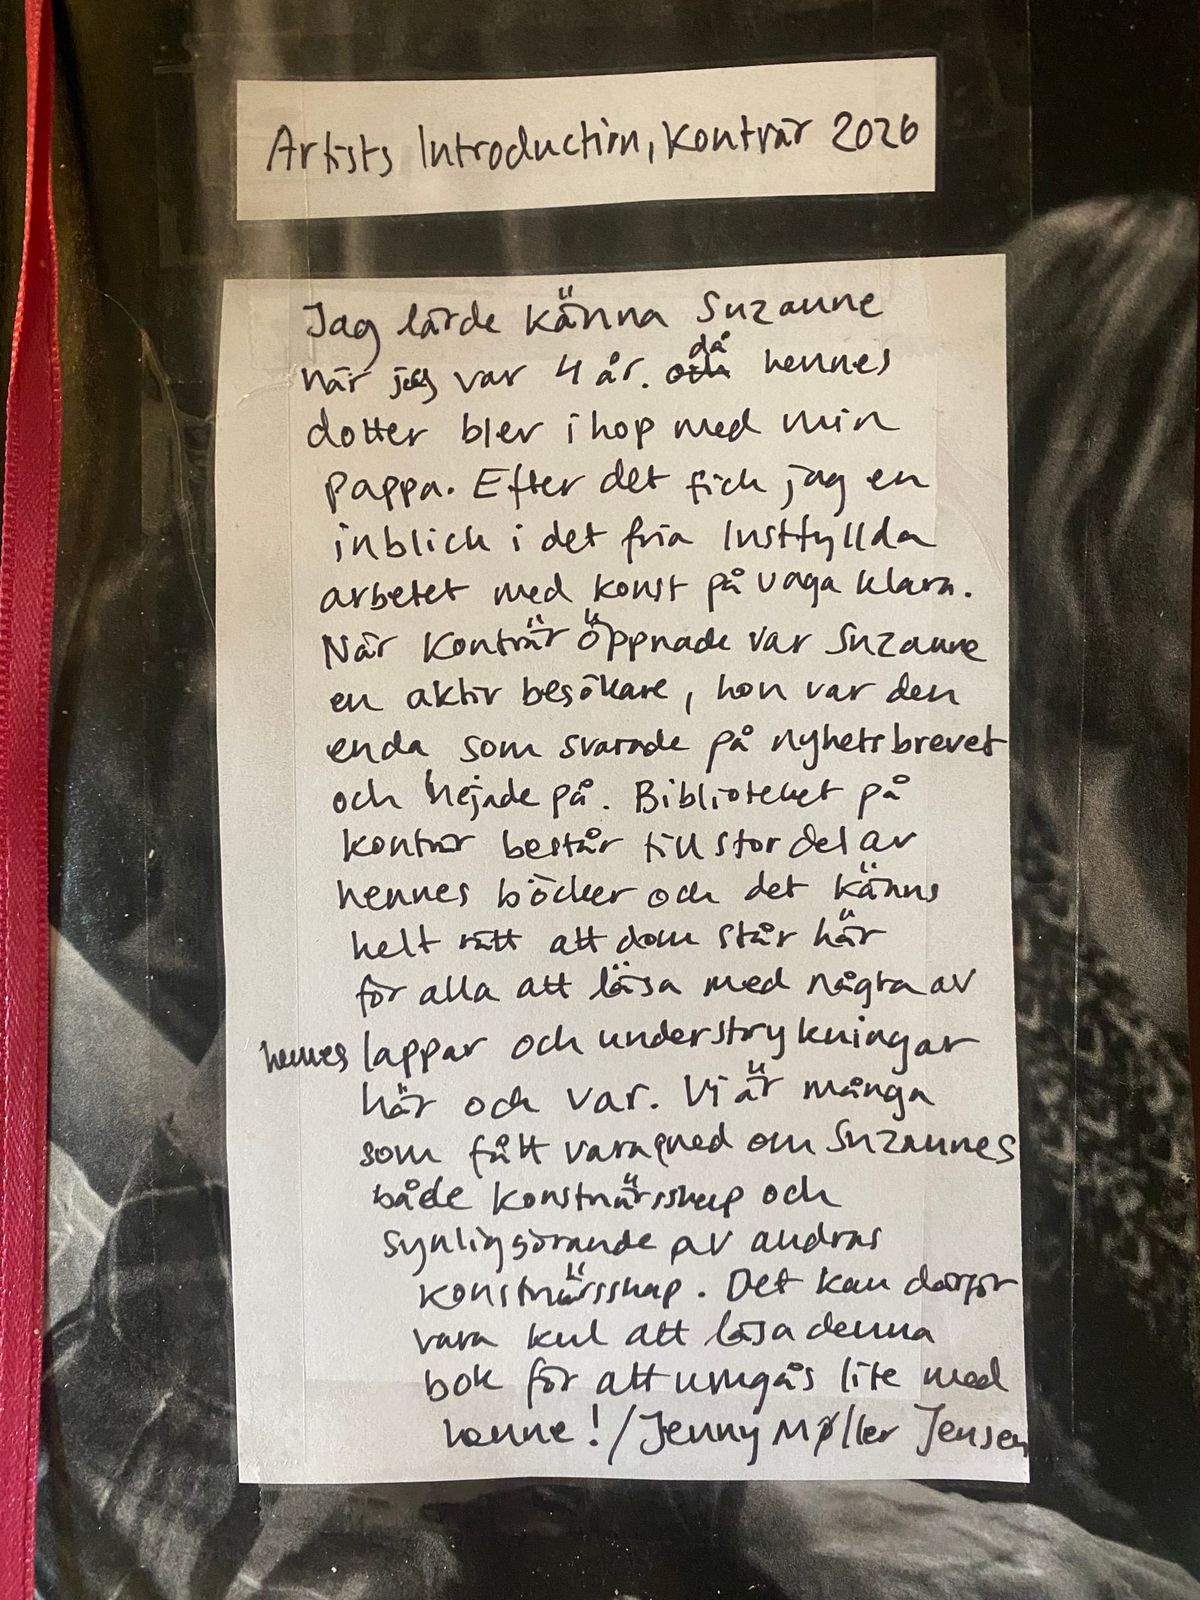 Artists Introduction, Konträr 2026
Jag lärde känna Suzanne
när jag var 4 år. då hennes
dotter blev ihop med min
pappa. Efter det fick jag en
inblick i det fria lustfyllda
arbetet med konst på vaga klara.
När Konträr öppnade var Suzanne
en aktiv besökare, hon var den
enda som svarade på nyhetsbrevet
och hejade på. Biblioteket på
konträr består till stor del av
hennes böcker och det känns
helt rätt att dom står här
för alla att läsa med några av
hennes lappar och understrykningar
här och var. Vi är många
som fått vara med om Suzannes
både konstnärsskap och
synliggörande av andras
konstnärsskap. Det kan därför
vara kul att läsa denna
bok för att umgås lite med
henne! /Jenny Møller Jensen